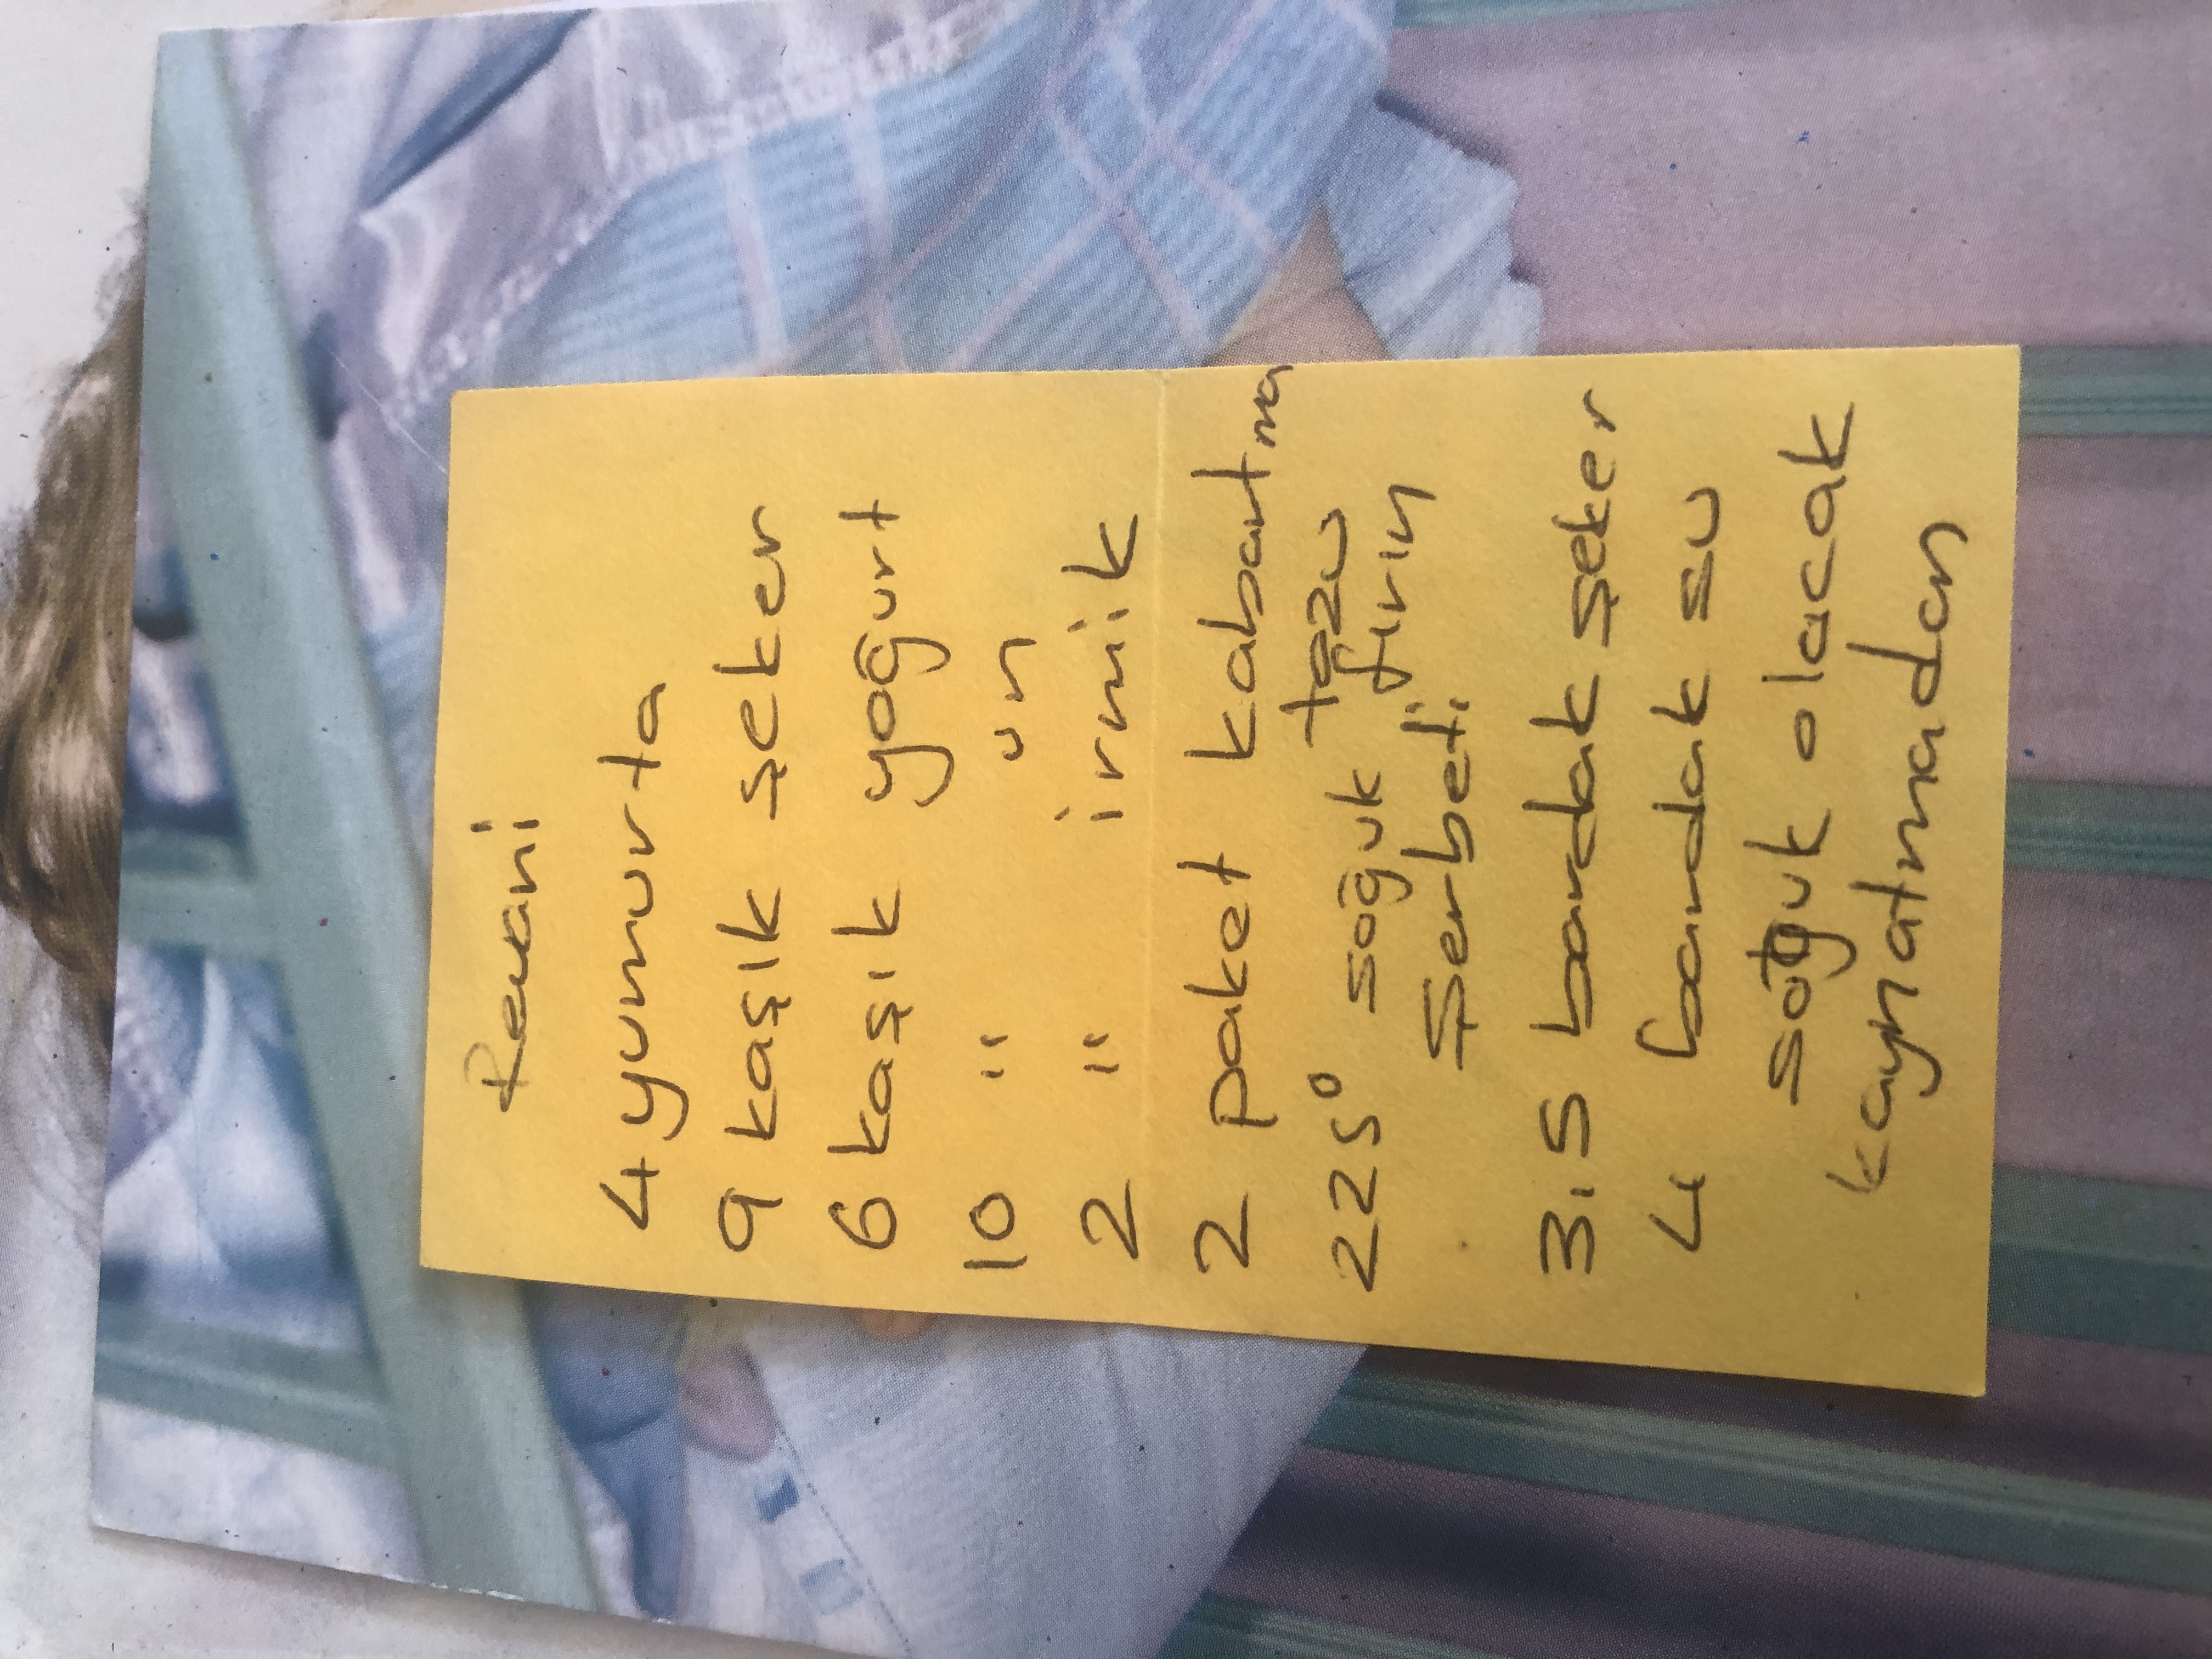 Revani
4 yumurta
9 kaşık şeker
6 kaşık yoğurt
10 " un
2 " irmik
2 paket kabartma
tozu
225° soğuk fırın
Şerbeti
3.5 bardak şeker
4 bardak su
soğuk olacak
kaynatmadan